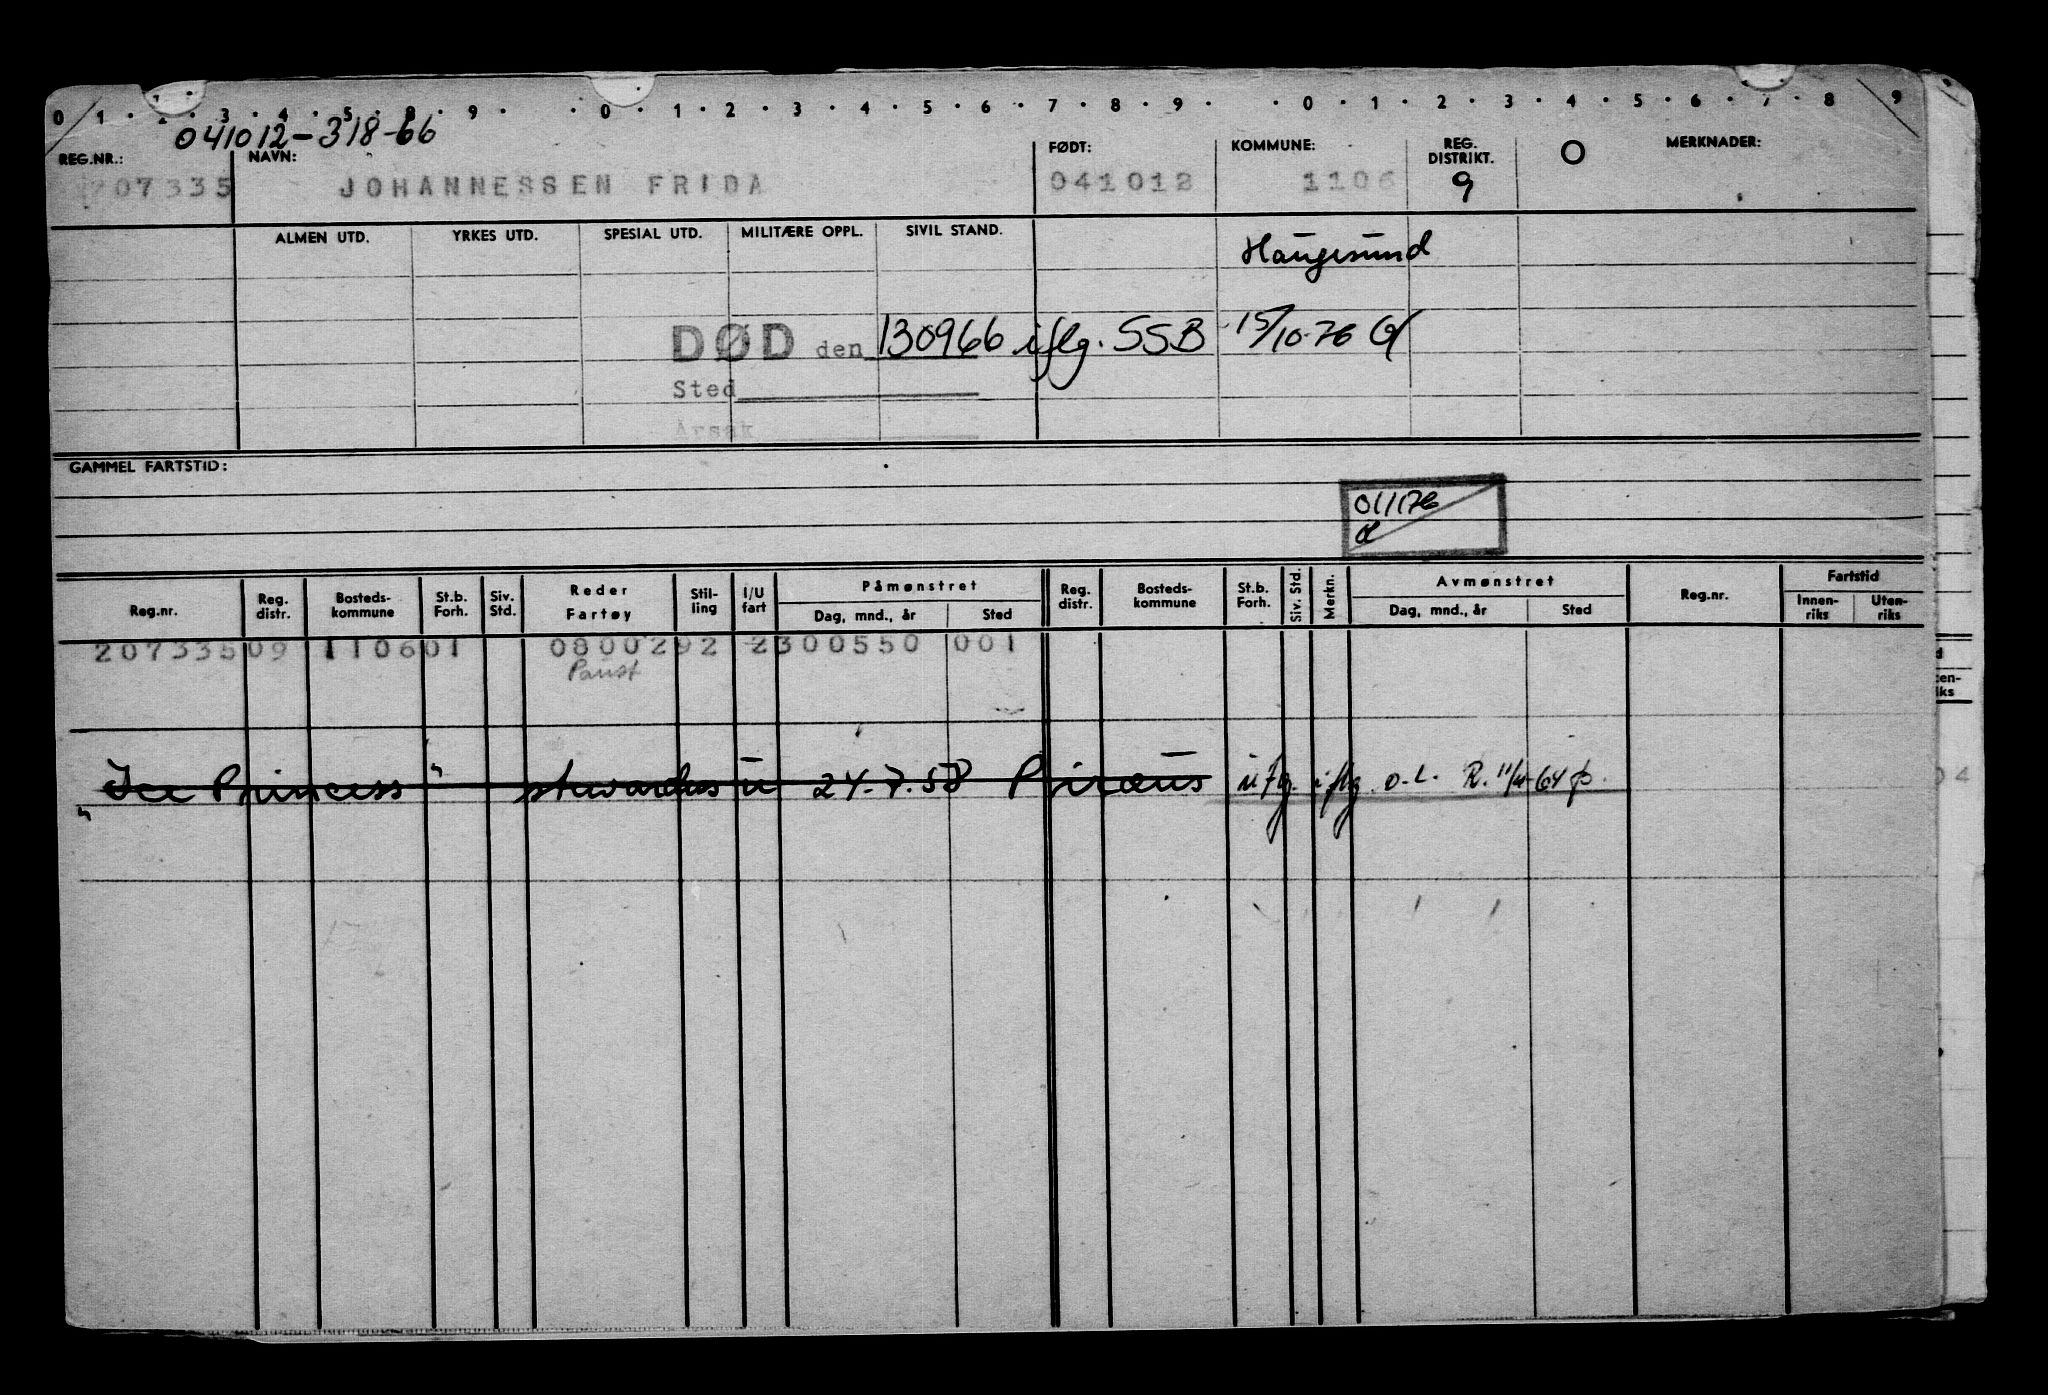 0 1 · 2 · 3 · 4 · 5 · 8 · 9 · · 0 · 1 · 2 · 3 · 4 · 5 · 6 · 7 · 8 · 9 · · 0 · 1 · 2 · 3 · 4 · 5 · 6 · 7 · 8 9
041012-318-66
REG.NR.: NAVN: FØDT: KOMMUNE: REG. DISTRIKT. O MERKNADER:
207335 JOHANNESSEN FRIDA 041012 1106 9
ALMEN UTD. YRKES UTD. SPESIAL UTD. MILITÆRE OPPL. SIVIL STAND.
Haugesund
DØD den 130966 iflg. SSB 15/10-76
Sted
Årsak
GAMMEL FARTSTID:
011176
Reg.nr. Reg. distr. Bosteds-kommune St.b. Forh. Siv. Std. Reder Fartøy Stil-ling I/U fart Påmønstret Dag, mnd., år Sted Reg. distr. Bosteds-kommune St.b. Forh. Siv. Std. Merkn. Avmønstret Dag, mnd., år Sted Reg.nr. Fartstid Innen-riks Uten-riks
207335 09 1106 01 0800292 2300550 001
Paust
"Ice Princess" stewardess u 24.7.58 Piraeus u.fg. iflg. o.l. R. 11/4-64